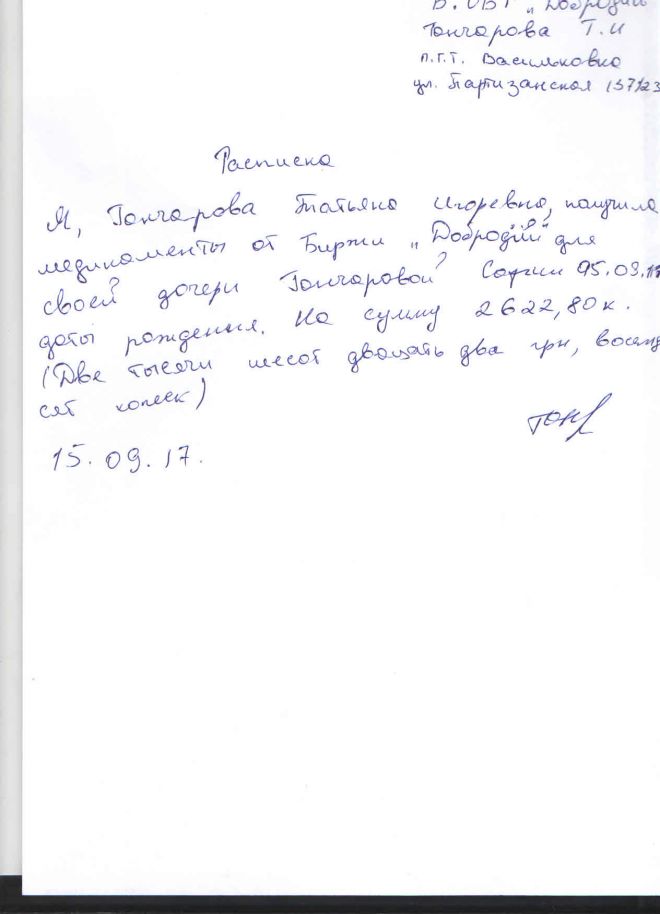 В. ОБГ „Добродій
Гончарова Т.И
п.г.т. Васильковка
ул. Партизанская 157/23
Расписка
Я, Гончарова Татьяна Игоревна, получила
медикаменты от Биржи „Добродій" для
своей дочери Гончаровой Софии 05.09.17
даты рождения. На сумму 2622,80к.
(Две тысячи шесот двацать два грн, восемд
сят копеек)
Гонч
15.09.17.